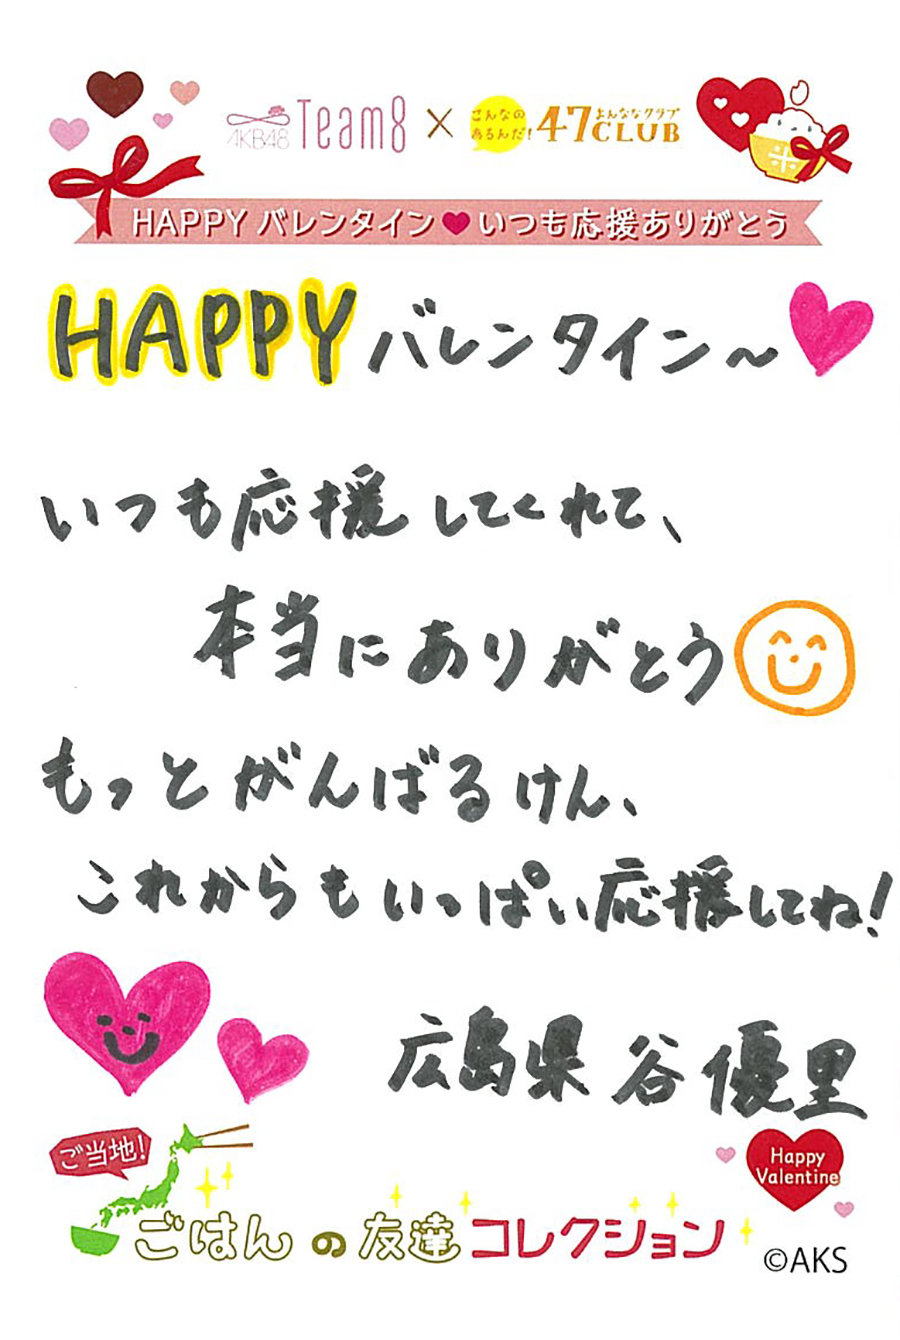 AKB48 Team8 × こんなのあるんだ! 47CLUB よんななクラブ
HAPPY バレンタイン♥いつも応援ありがとう
HAPPY バレンタイン〜
いつも応援してくれて、
本当にありがとう
もっとがんばるけん、
これからもいっぱい応援してね!
広島県 谷優里
ご当地!
Happy
Valentine
ごはんの友達コレクション
©AKS